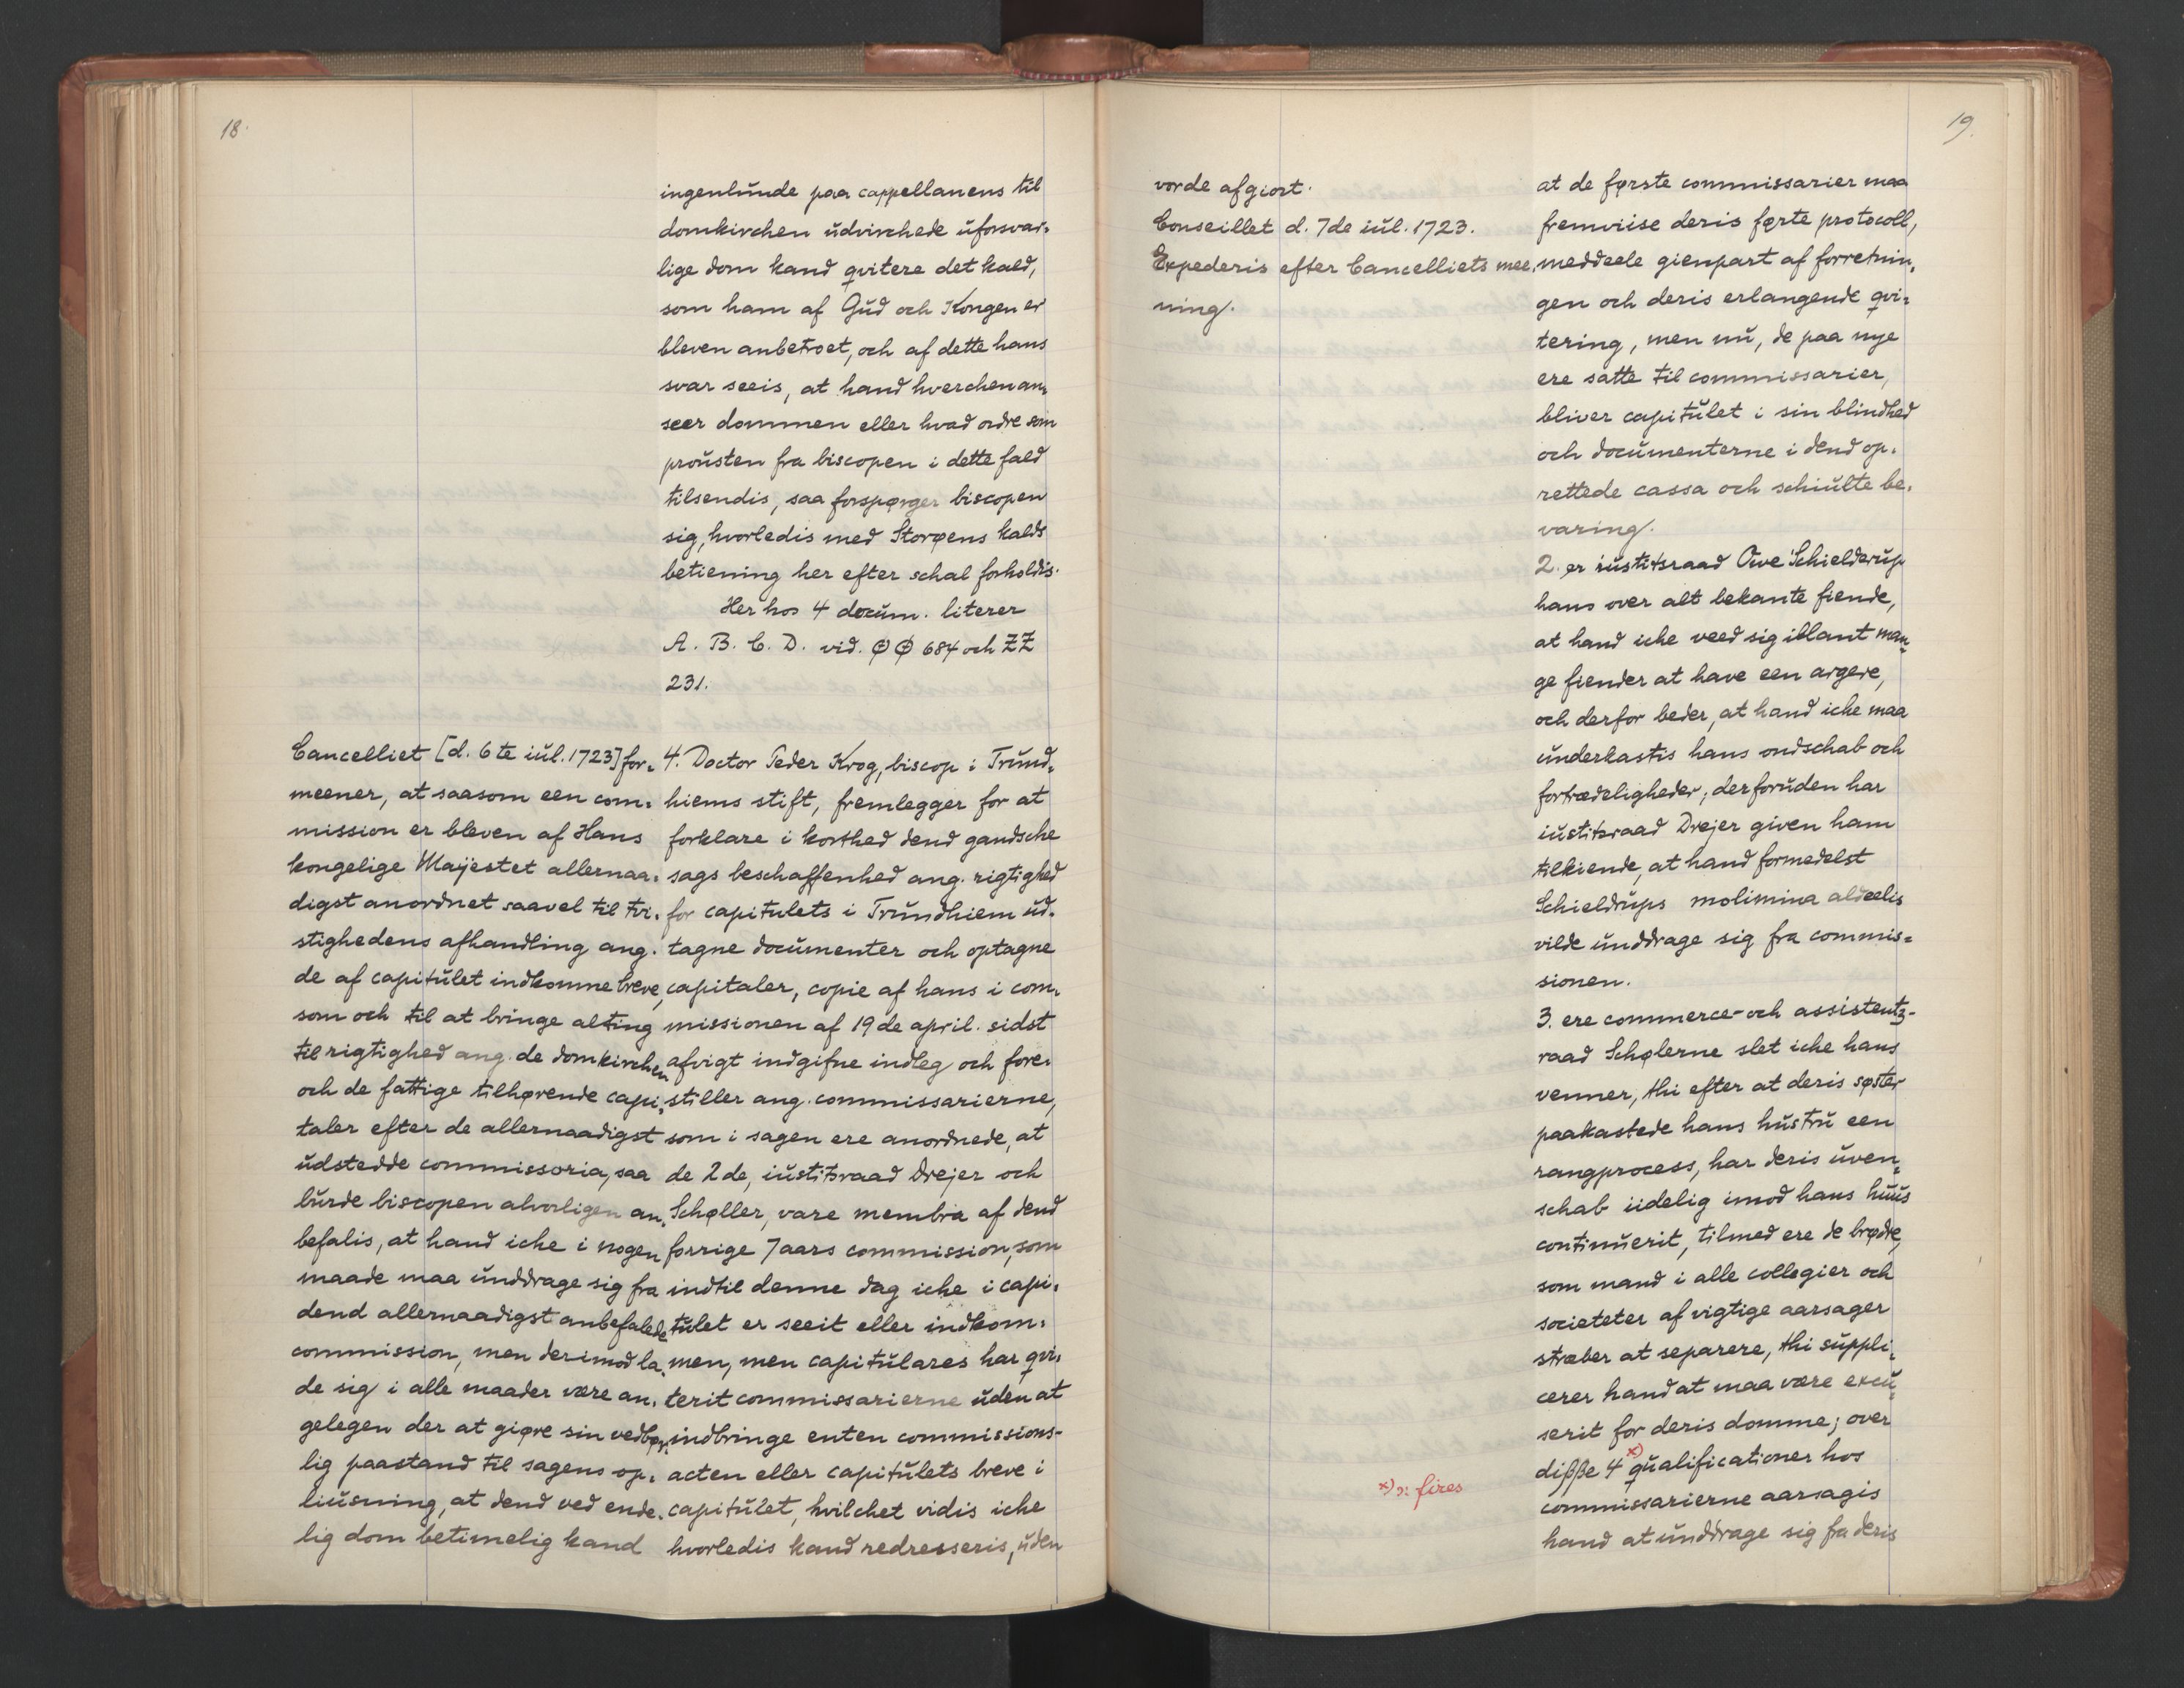 18.
ingenlunde paa cappellanens til
domkirchen udvirchede uforsvar-
lige dom kand qvitere det kald,
som ham af Gud och Kongen er
bleven anbetroet, och af dette hans
svar seeis, at hand hverchen an-
seer dommen eller hvad ordre som
prousten fra biscopen i dette fald
tilsendis, saa forspørger biscopen
sig, hvorledis med Storøens kalds
betiening her efter schal forholdis.
Her hos 4 docum. literer
A. B. C. D. vid. ØØ 684 och ZZ
231.
Cancelliet [d. 6te iul. 1723] for-
meener, at saasom een com-
mission er bleven af Hans
kongelige Mayestet allernaa-
digst anordnet saavel til tvi-
stighedens afhandling ang.
de af capitulet indkomne breve,
som och til at bringe alting
til rigtighed ang. de domkirchen
och de fattige tilhørende capi-
taler efter de allernaadigst
udstedde commissoria, saa
burde biscopen alvorligen an-
befalis, at hand iche i nogen
maade maa unddrage sig fra
dend allernaadigst anbefalede
commission, men derimod la-
de sig i alle maader være an-
gelegen der at giøre sin vedbør-
lig paastand til sagens op-
liusning, at dend ved ende-
lig dom betimelig kand
4. Doctor Peder Krog, biscop i Trund-
hiems stift, fremlegger for at
forklare i korthed dend gandsche
sags beschaffenhed ang. rigtighed
for capitulets i Trundhiem ud-
tagne documenter och optagne
capitaler, copie af hans i com-
missionen af 19de april. sidst
afvigt indgifne indleg och fore-
stiller ang. commissarierne,
som i sagen ere anordnede, at
de 2de, iustitsraad Drejer och
Schøller, vare membra af dend
forrige 7 aars commission, som
indtil denne dag iche i capi-
tulet er seeit eller indkom-
men, men capitulares har qvi-
terit commissarierne uden at
indbringe enten commissions-
acten eller capitulets breve i
capitulet, hvilchet vidis iche
hvorledis kand redresseris, uden
19.
vorde afgiort.
Conseillet d. 7de iul. 1723.
Expederis efter Cancelliets mee-
ning.
at de første commissarier maa
fremviise deris førte protocoll,
meddeele gienpart af forretnin-
gen och deris erlangende qvi-
tering, men nu, de paa nye
ere satte til commissarier,
bliver capitulet i sin blindhed
och documenterne i dend op-
rettede cassa och schiulte be-
varing.
2. er iustitsraad Ove Schielderup
hans over alt bekante fiende,
at hand iche veed sig iblant man-
ge fiender at have een argere,
och derfor beder, at hand iche maa
underkastis hans ondschab och
fortrædeligheder; derforuden har
iustitsraad Drejer given ham
tilkiende, at hand formedelst
Schieldrups molimina aldeelis
vilde unddrage sig fra commis-
sionen.
3. ere commerce- och assistentz-
raad Schølerne slet iche hans
venner, thi efter at deris søster
paakastede hans hustru een
rangprocess, har deris uven-
schab iidelig imod hans huus
continuerit, tilmed ere de brødre,
som mand i alle collegier och
societeter af vigtige aarsager
stræber at separere, thi suppli-
cerer hand at maa være excu-
serit for deris domme; over
x)
diße 4 qualificationer hos
commissarierne aarsagis
hand at unddrage sig fra deris
x) ɔ: fires